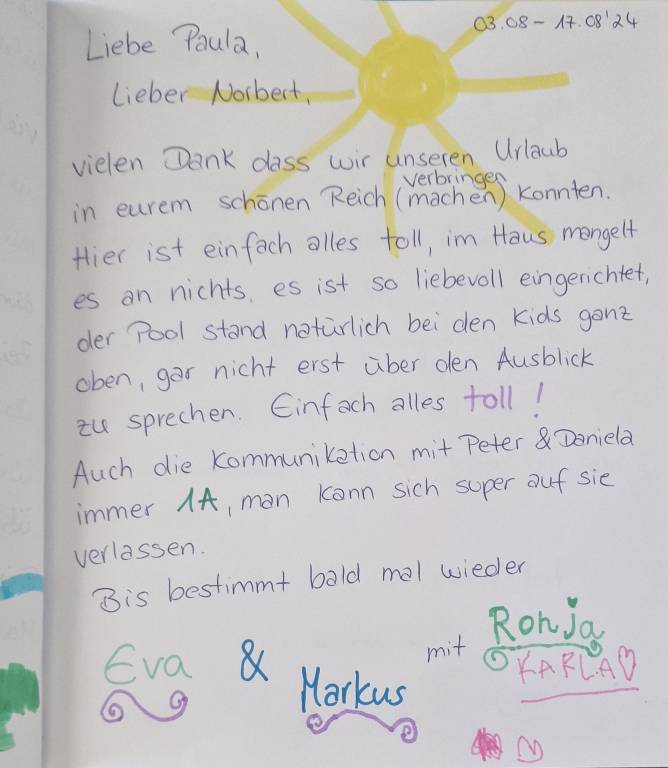 03.08 – 17.08'24
Liebe Paula,
Lieber Norbert,
vielen Dank dass wir unseren Urlaub
in eurem schönen Reich (machen) verbringen konnten.
Hier ist einfach alles toll, im Haus mangelt
es an nichts, es ist so liebevoll eingerichtet,
der Pool stand natürlich bei den Kids ganz
oben, gar nicht erst über den Ausblick
zu sprechen. Einfach alles toll!
Auch die Kommunikation mit Peter & Daniela
immer 1A, man kann sich super auf sie
verlassen.
Bis bestimmt bald mal wieder
Eva & Markus mit Ronja
KARLA